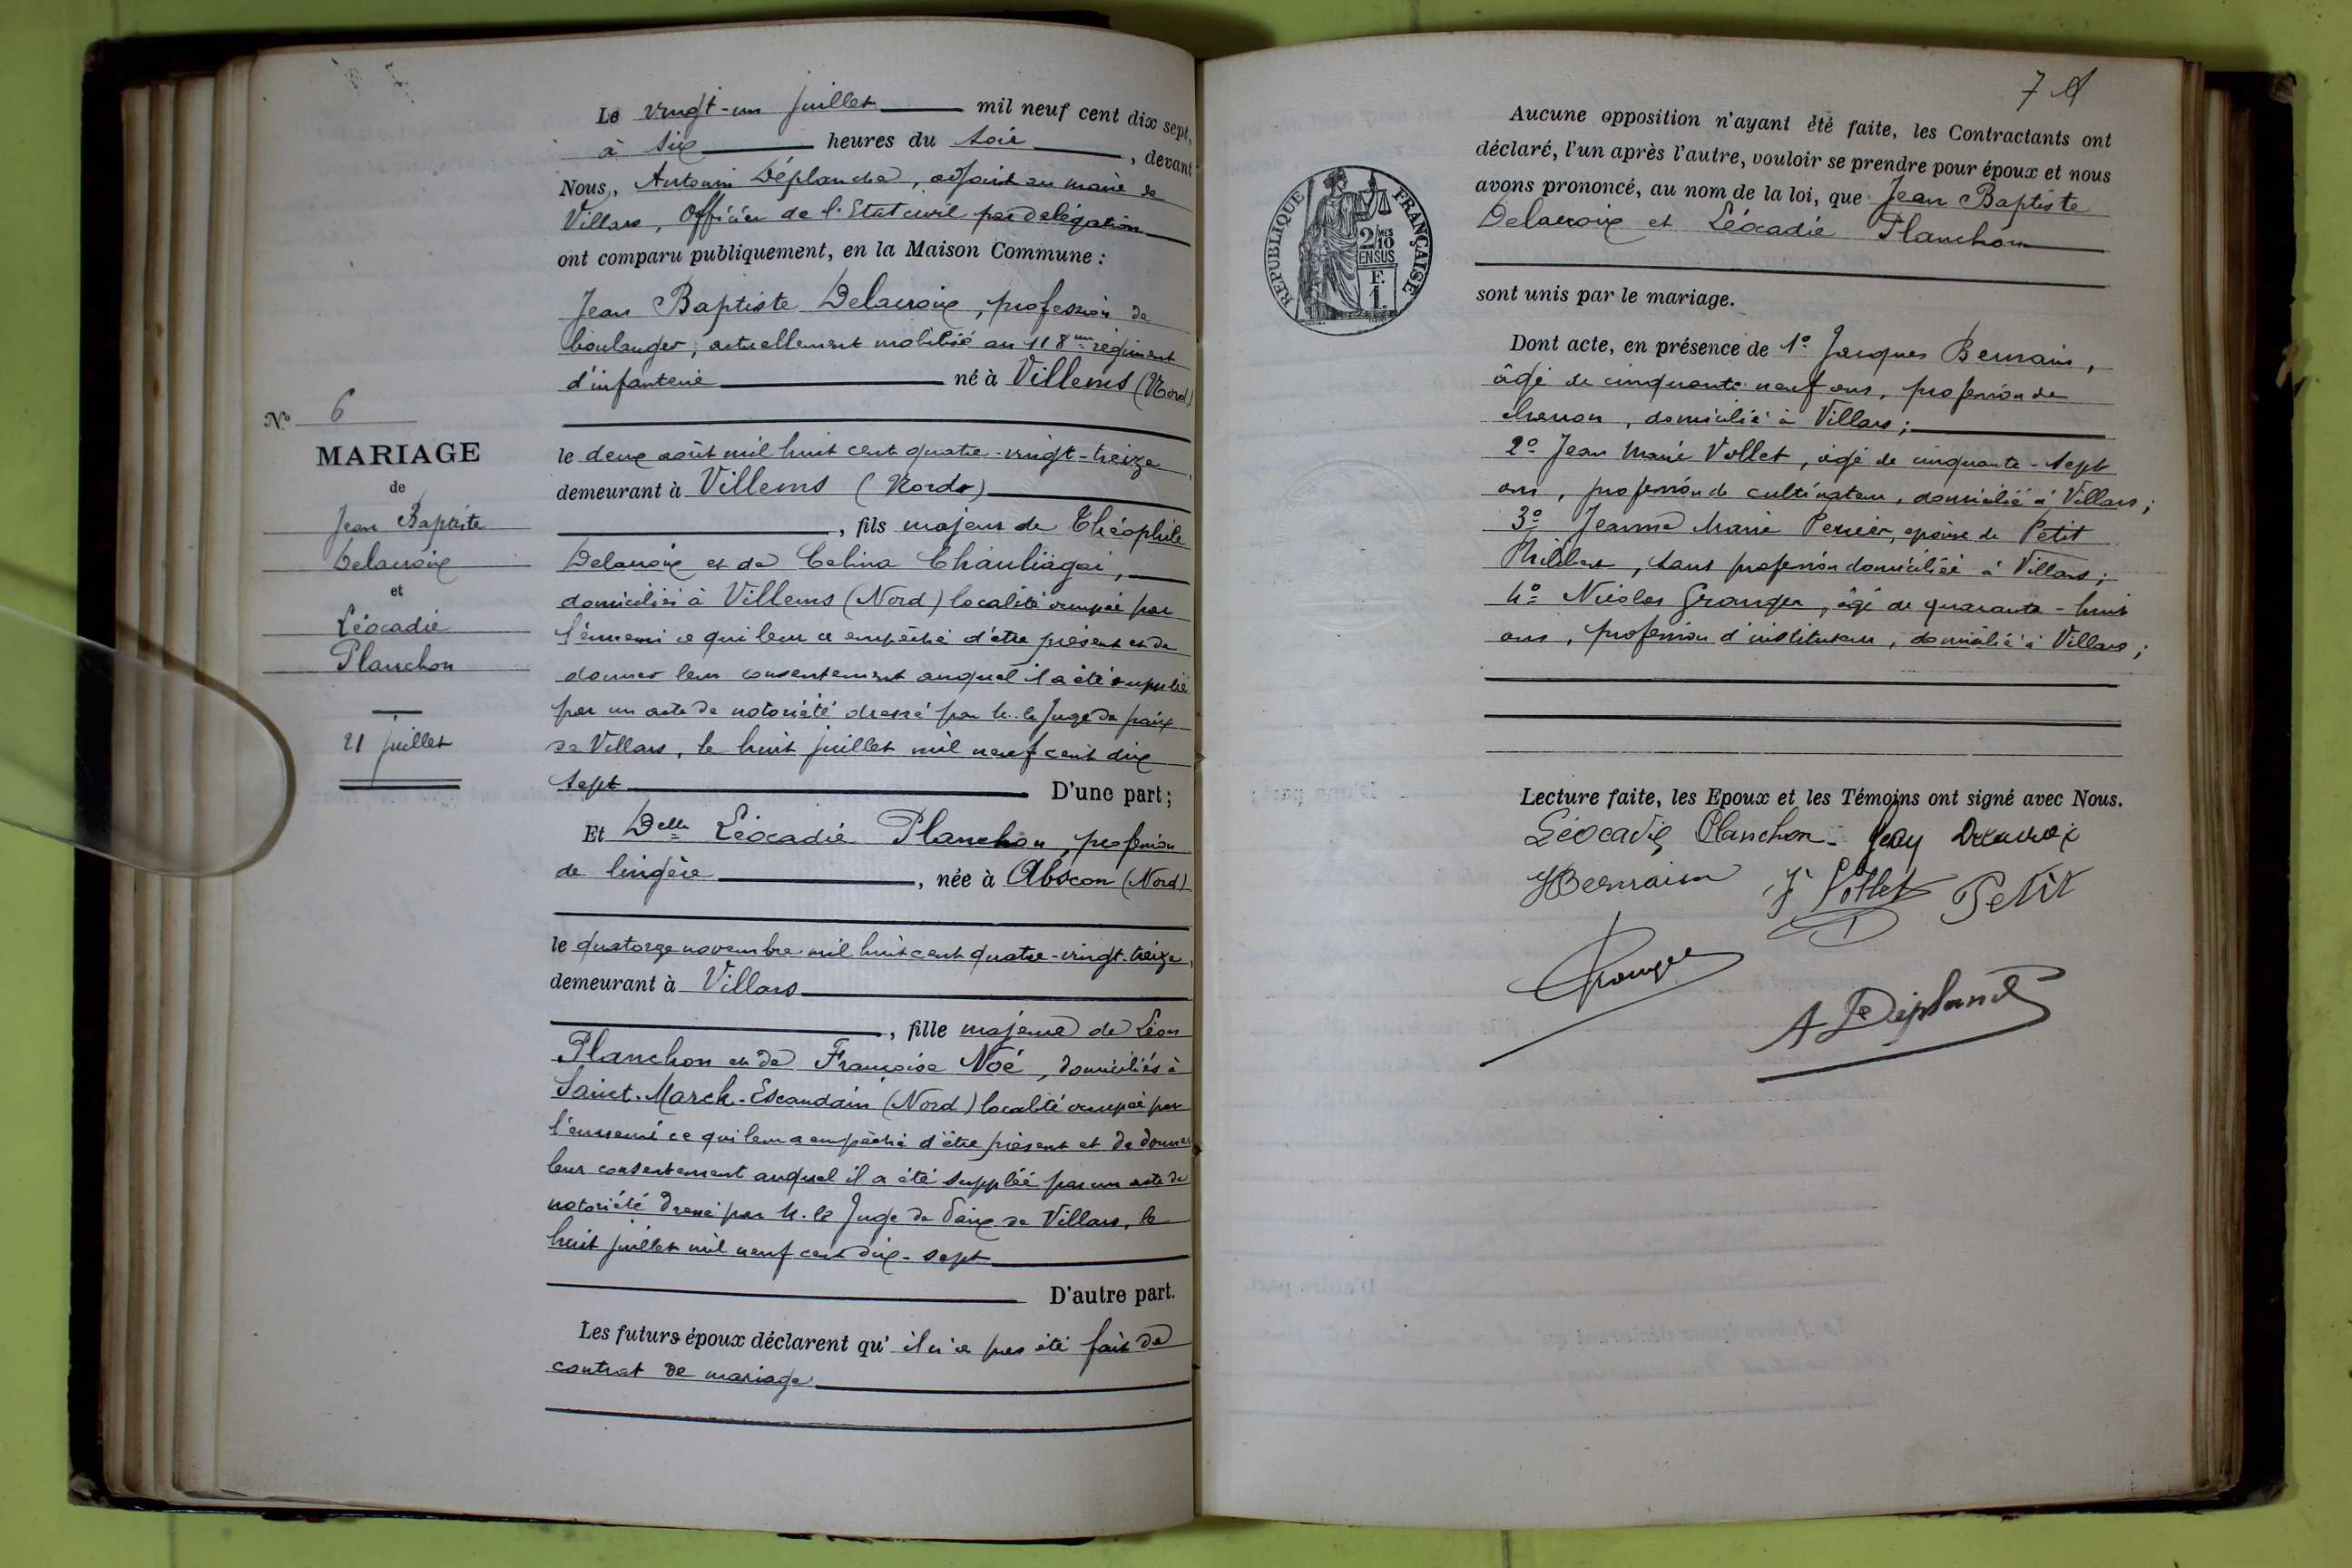 Le vingt-un juillet mil neuf cent dix sept,
à six heures du soir, devant
Nous, Antonin Déplanche, adjoint au maire de
Villars, Officier de l'Etat civil par délégation
ont comparu publiquement, en la Maison Commune :
Jean Baptiste Delacroix, profession de
boulanger, actuellement mobilisé au 118me régiment
d'infanterie né à Villems (Nord)
le deux août mil huit cent quatre-vingt-treize,
demeurant à Villems (Nord)
, fils majeur de Théophile
Delacroix et de Celina
domiciliés à Villems (Nord) localité occupée par
l'ennemi ce qui leur a empêché d'être présent et de
donner leur consentement auquel il a été suppléé
par un acte de notoriété dressé par M. le Juge de paix
de Villars, le huit juillet mil neuf cent dix
sept D'une part ;
Et Delle Léocadie Planchon, profession
de lingère, née à Abscon (Nord)
le quatorze novembre mil huit cent quatre-vingt-treize,
demeurant à Villars
, fille majeure de Léon
Planchon et de Françoise Noé, domiciliés à
Sainct-March-Escaudain (Nord) localité occupée par
l'ennemi ce qui leur a empêché d'être présent et de donner
leur consentement auquel il a été suppléé par un acte de
notoriété dressé par M. le Juge de Paix de Villars, le
huit juillet mil neuf cent dix-sept
D'autre part.
Les futurs époux déclarent qu'il n'a pas été fait de
contrat de mariage
No 6
MARIAGE
de
Jean Baptiste
Delacroix
et
Léocadie
Planchon
21 juillet
7
Aucune opposition n'ayant été faite, les Contractants ont
déclaré, l'un après l'autre, vouloir se prendre pour époux et nous
avons prononcé, au nom de la loi, que Jean Baptiste
Delacroix et Léocadie Planchon
sont unis par le mariage.
Dont acte, en présence de 1° Jacques Bernain,
âgé de cinquante neuf ans, profession de
charron, domicilié à Villars ;
2° Jean Marie Vollet, âgé de cinquante-sept
ans, profession de cultivateur, domicilié à Villars ;
3° Jeanne Marie Perrier, épouse de Petit
Philibert, sans profession domiciliée à Villars ;
4° Nicolas Granger, âgé de quarante-huit
ans, profession d'instituteur, domicilié à Villars ;
REPUBLIQUE FRANÇAISE
2/MES
10
EN SUS
F.
1.
Lecture faite, les Epoux et les Témoins ont signé avec Nous.
Léocadie Planchon Jean Delacroix
JBernain J Vollet Petit
Granger
A Déplanche